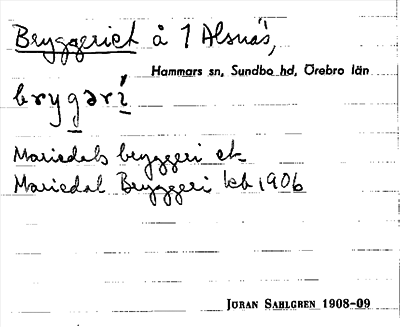 Bryggeriet å 1 Alsnäs,
Hammars sn, Sundbo hd, Örebro län
brygərí
Mariedals bryggeri ek
Mariedal Bryggeri kb 1906
JÖRAN SAHLGREN 1908-09